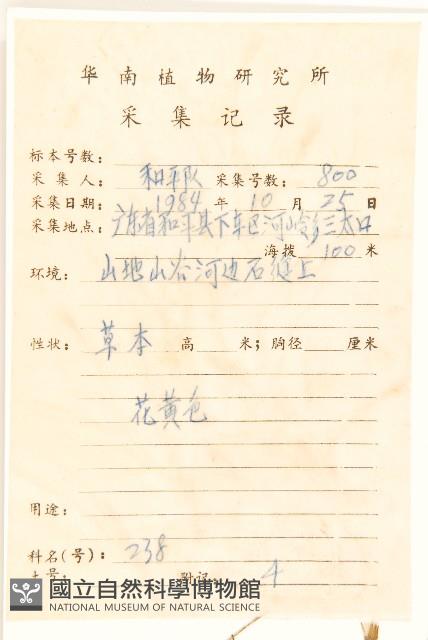 华南植物研究所
采集记录
标本号数:
采集人: 和平队 采集号数: 800
采集日期: 1984 年 10 月 25 日
采集地点: 广东省和平县下车区河岭乡三太口
海拨 100 米
环境: 山地山谷河边石缝上
性状: 草本 高 米; 胸径 厘米
花黄色
用途:
科名(号): 238
附记: 4
國立自然科學博物館
NATIONAL MUSEUM OF NATURAL SCIENCE